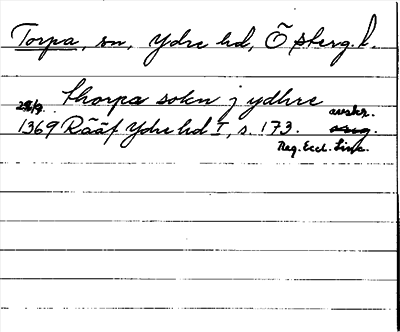 Torpa, sn, Ydre hd, Östergl.
thorpa sokn j ydhre
28/9 avskr.
1369 Rääf Ydre hd I, s. 173. orig.
Reg. Eccl. Linc.